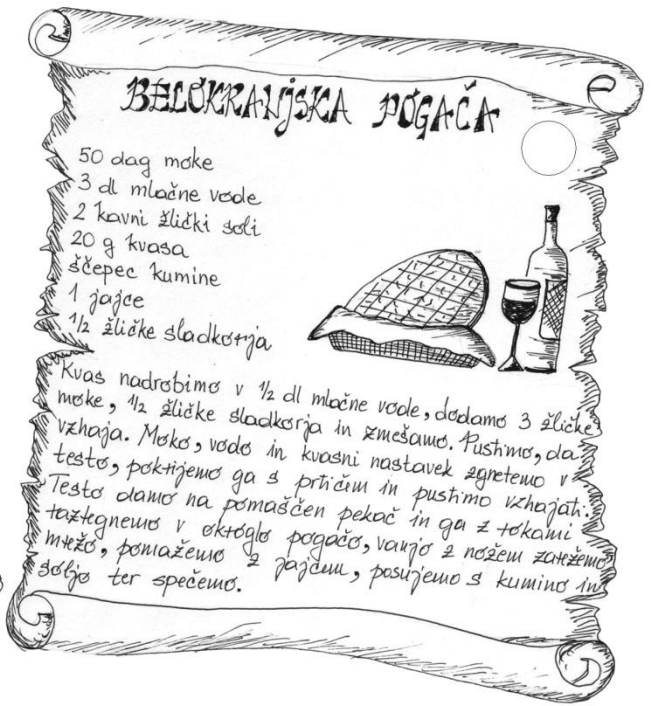 BELOKRANJSKA POGAČA
50 dag moke
3 dl mlačne vode
2 kavni žlički soli
20 g kvasa
ščepec kumine
1 jajce
1/2 žličke sladkorja
Kvas nadrobimo v 1/2 dl mlačne vode, dodamo 3 žličke
moke, 1/2 žličke sladkorja in zmešamo. Pustimo, da
vzhaja. Moko, vodo in kvasni nastavek zgnetemo v
testo, pokrijemo ga s prtičem in pustimo vzhajati.
Testo damo na pomaščen pekač in ga z rokami
raztegnemo v okroglo pogačo, vanjo z nožem zarežemo
mrežo, pomažemo z jajcem, posujemo s kumino in
soljo ter spečemo.